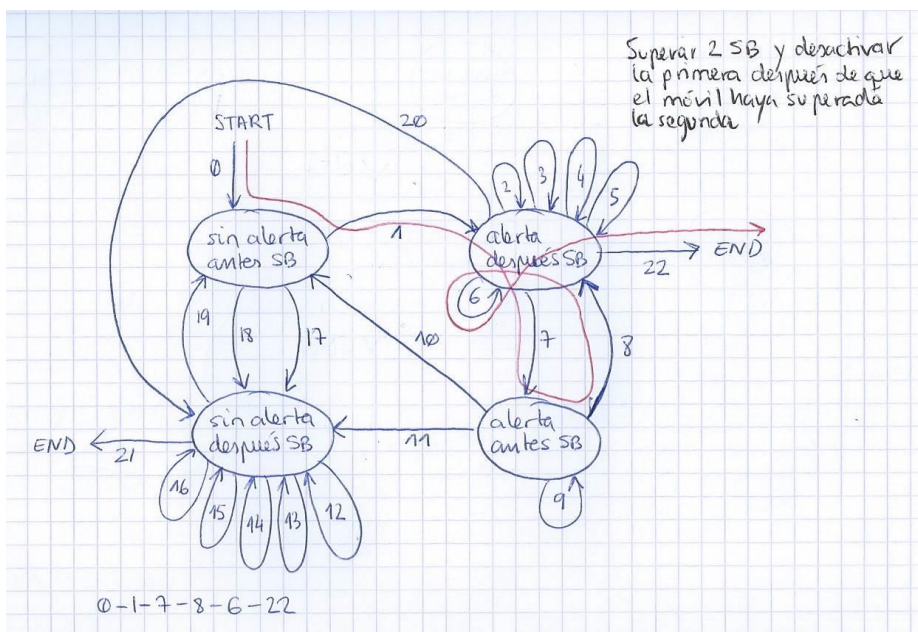 Superar 2 SB y desactivar
la primera después de que
el móvil haya superado
la segunda
START
0
20
2
3
4
5
sin alerta
antes SB
1
alerta
después SB
END
22
6
19
18
17
10
7
8
sin alerta
después SB
11
alerta
antes SB
END
21
16
15
14
13
12
9
0-1-7-8-6-22